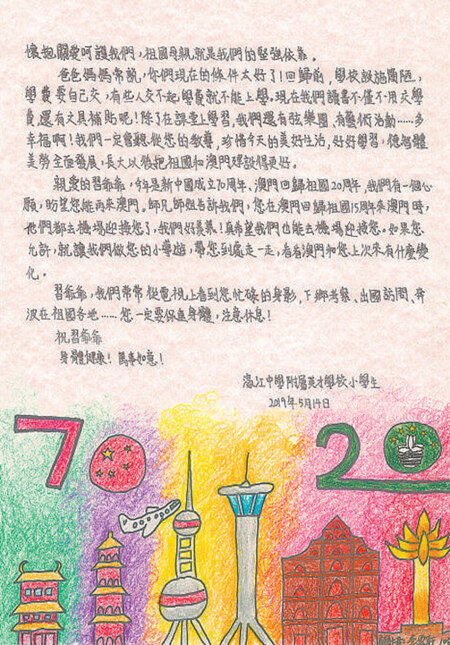 懷抱關愛呵護我們，祖國母親就是我們的堅強依靠。
爸爸媽媽常說，你們現在的條件太好了！回歸前，學校設施簡陋，
學費要自己交，有些人交不起學費就不能上學。現在我們讀書不僅不用交學費，
還有文具補貼呢！除了在課堂上學習，我們還有弦樂團、有藝術活動……多
幸福啊！我們一定會聽從您的教導，珍惜今天的美好生活，好好學習，德智體
美勞全面發展，長大以後把祖國和澳門建設得更好。
親愛的習爺爺，今年是新中國成立70周年、澳門回歸祖國20周年，我們有一個心
願，盼望您能再來澳門。師兄師姐告訴我們，您在澳門回歸祖國15周年來澳門時，
他們都去機場迎接您了，我們好羨慕！真希望我們也能去機場迎接您。如果您
允許，就讓我們做您的小導遊，帶您到處走一走，看看澳門和您上次來有什麼變
化。
習爺爺，我們常常從電視上看到您忙碌的身影，下鄉考察、出國訪問、奔
波在祖國各地……您一定要保重身體，注意休息！
祝習爺爺
身體健康！萬事如意！
濠江中學附屬英才學校小學生
2019年5月14日
70 20